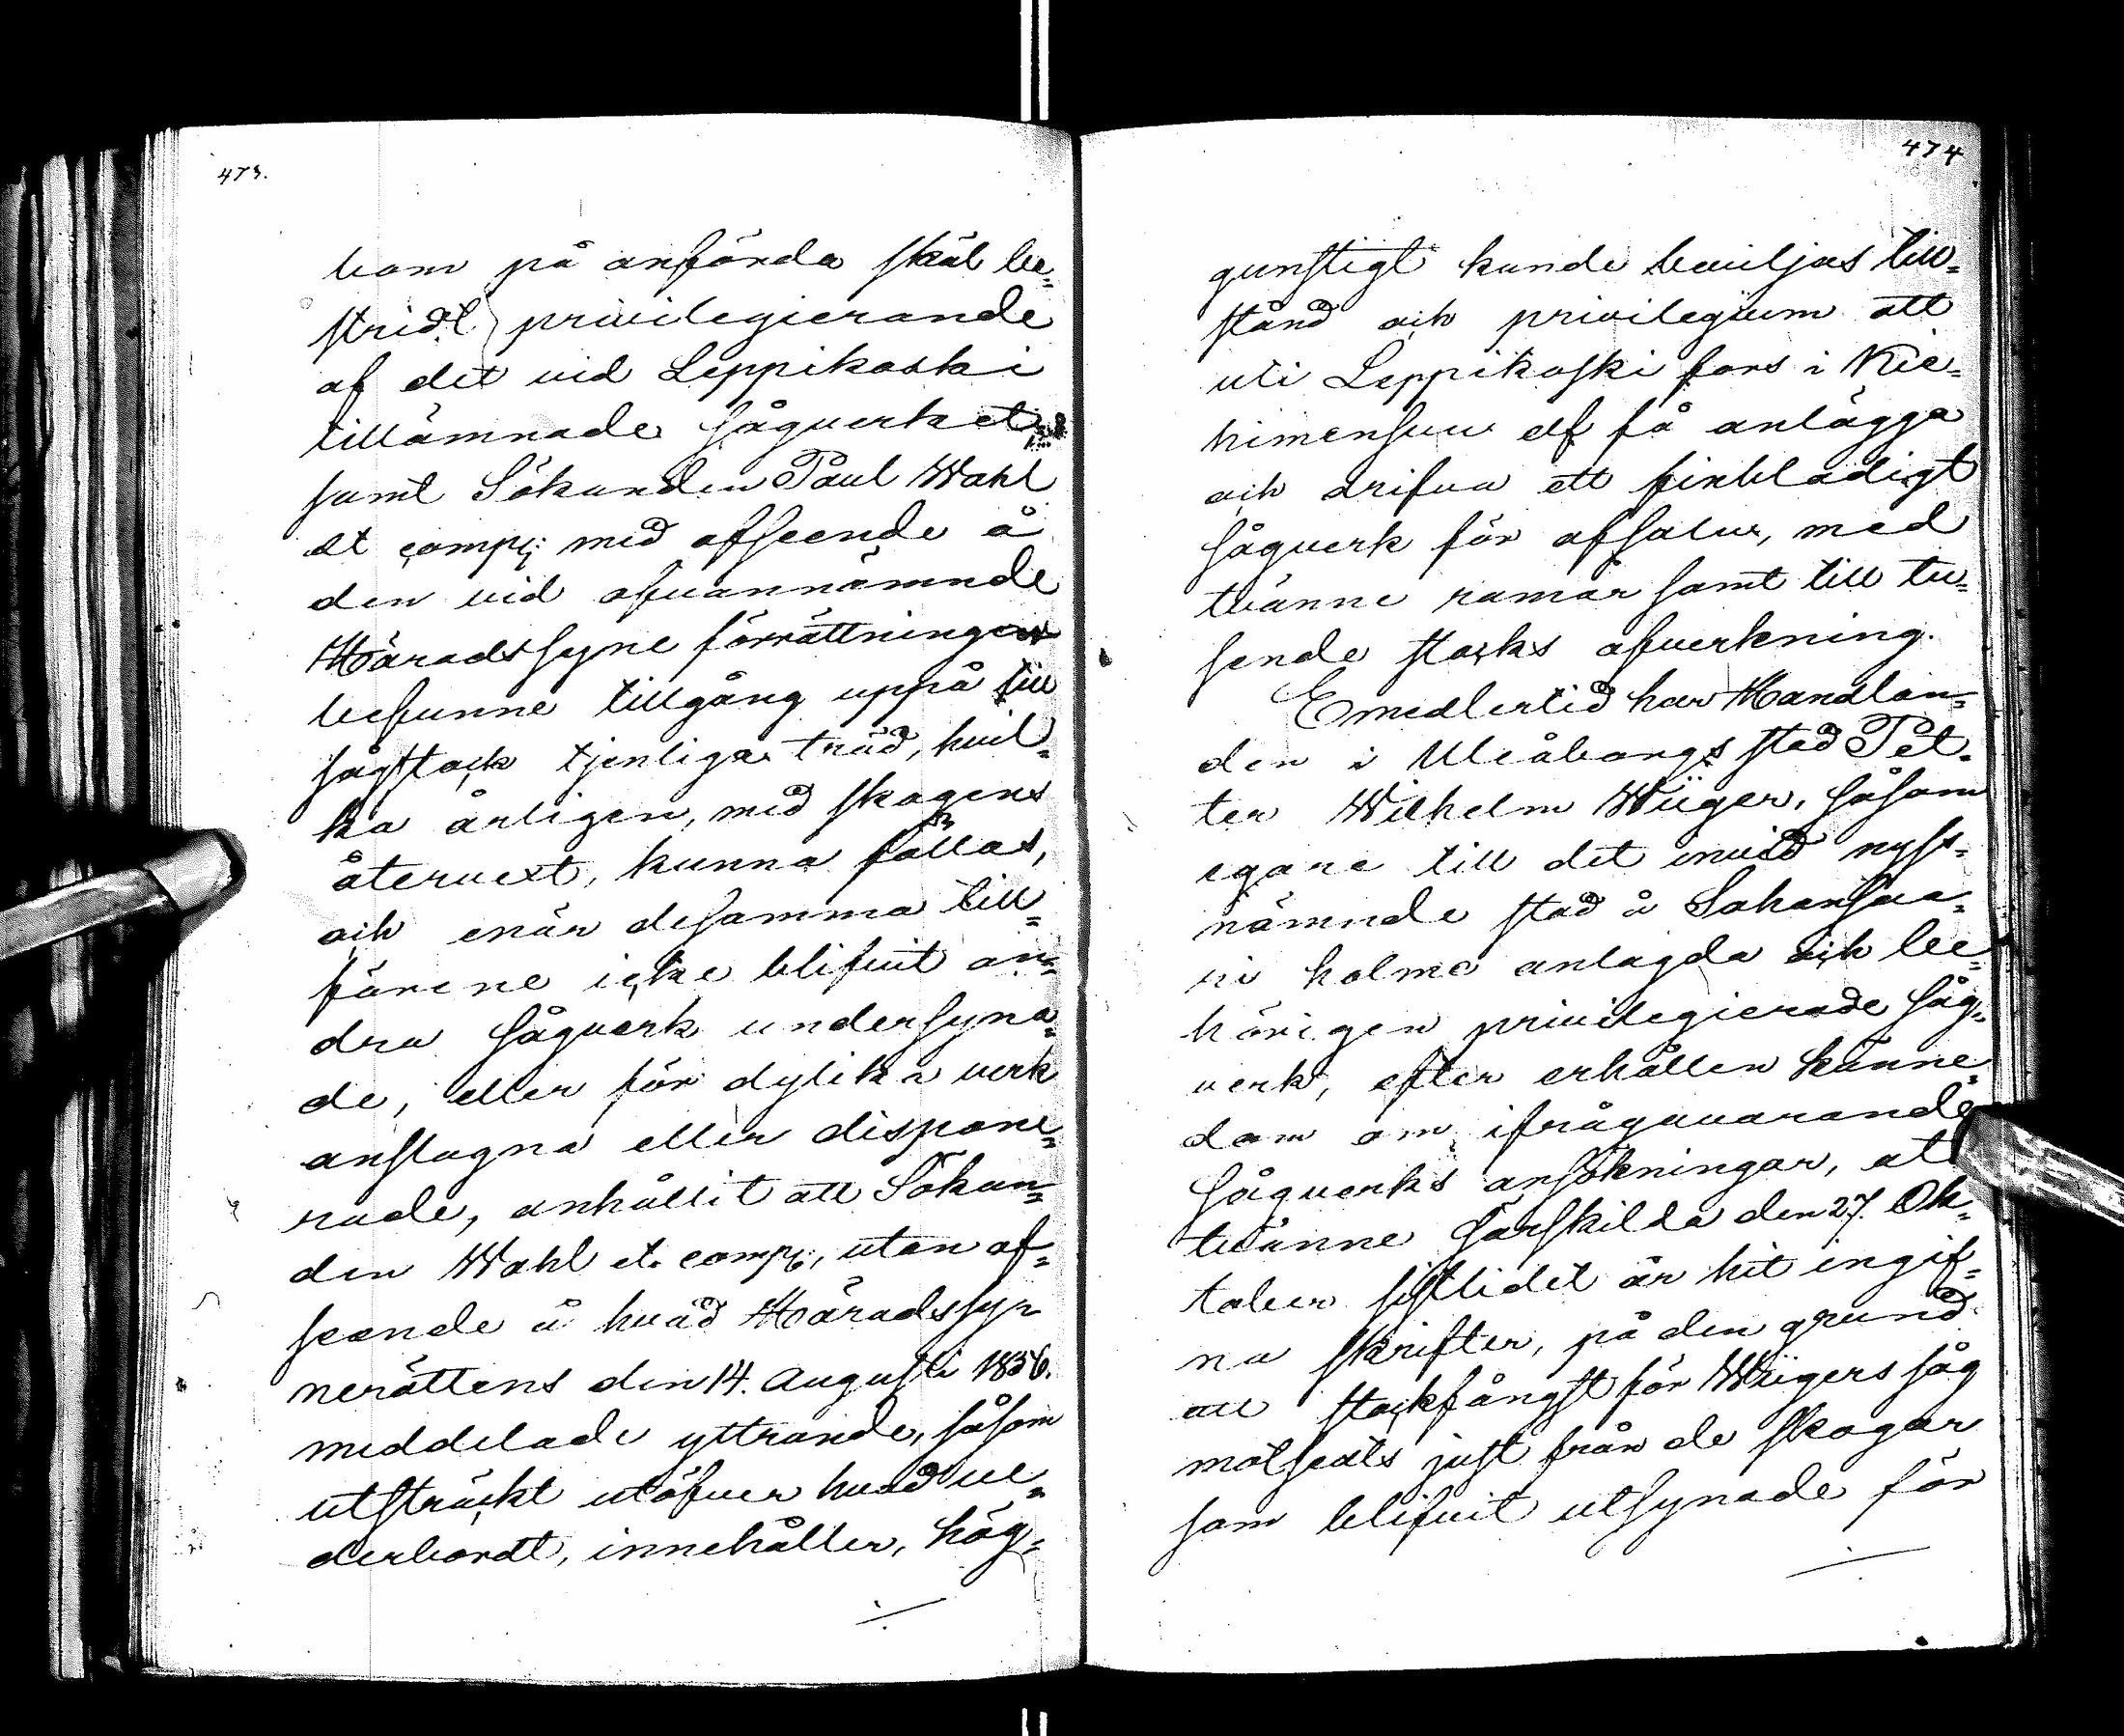 473.
bom på anförda skäl be-
stridt privilegierande
af det vid Leppikoski
tillämnade sågverket
samt Sökanden Paul Wahl
et comp: med afseende å
den vid ofvannämnde
Häradssyne förrättningen
befunne tillgång uppå till
sågstock tjenliga träd, hvil-
ka årligen, med skogens
återvext, kunna fällas,
och enär desamma till-
förene icke blifvit an-
dra sågverk undersyna-
de, eller för dylika verk
anslagna eller dispone-
rade, anhållit att Sökan-
den Wahl et comp:, utan af-
seende å hvad Häradssy-
nerättens den 14. Augusti 1856.
meddelade yttrande, såsom
utsträckt utöfver hvad ve-
derbordt, innehåller, hög-
474
gunstigt kunde beviljas till-
stånd och privilegium att
uti Leppikoski fors i Kie-
himensuu elf få anlägga
och drifva ett finbladigt
sågverk för afsalu, med
tvänne ramar samt till tu-
sende stocks afverkning.
Emedlertid har Handlan-
den i Uleåborgs stad Pet-
ter Wilhelm Wüger, såsom
egare till det invid nyss-
nämnde stad å Sahansaa-
ri holme anlagda och be-
hörigen privilegierade såg-
verk, efter erhållen känne-
dom om ifrågavarande
sågverks ansökningar, uti
tvänne särskilda den 27. Ok-
tober sistlidet år hit ingif-
na skrifter, på den grund
att stockfångst för Wügers såg
motseäts just från de skogar
som blifvit utsynade för